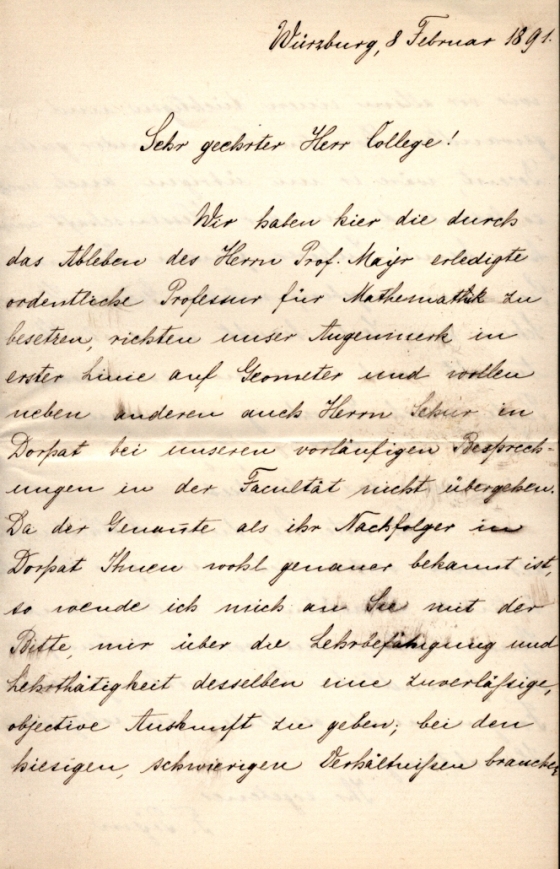 Würzburg, 8 Februar 1891.
Sehr geehrter Herr College!
Wir haben hier die durch
das Ableben des Herrn Prof. Mayr erledigte
ordentliche Professur für Mathematik zu
besetzen, richten unser Augenmerk in
erster Linie auf Geometer und wollen
neben anderen auch Herrn Schur in
Dorpat bei unseren vorläufigen Besprech-
ungen in der Facultät nicht übergehen.
Da der Genannte als ihr Nachfolger in
Dorpat Ihnen wohl genauer bekannt ist,
so wende ich mich an Sie mit der
Bitte, mir über die Lehrbefähigung und
Lehrthätigkeit desselben eine zuverläßige,
objective Auskunft zu geben; bei den
hiesigen, schwierigen Verhältnißen brauchen